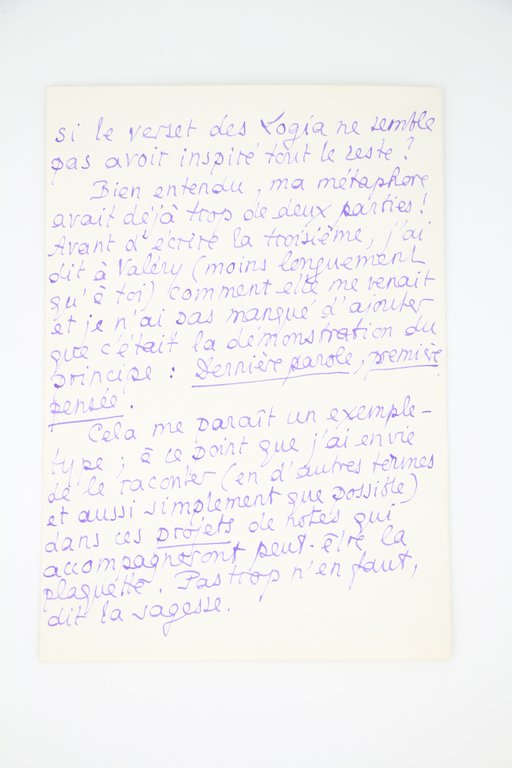 si le verset des Logia ne semble
pas avoir inspiré tout le reste ?
Bien entendu, ma métaphore
avait déjà trop de deux parties !
Avant d'écrire la troisième, j'ai
dit à Valéry (moins longuement
qu'à toi) comment elle me venait
et je n'ai pas manqué d'ajouter
que c'était la démonstration du
principe : Dernière parole, première
pensée.
Cela me paraît un exemple-
type ; à ce point que j'ai envie
de le raconter (en d'autres termes
et aussi simplement que possible)
dans ces projets de notes qui
accompagneront peut-être la
plaquette. Pas trop n'en faut,
dit la sagesse.